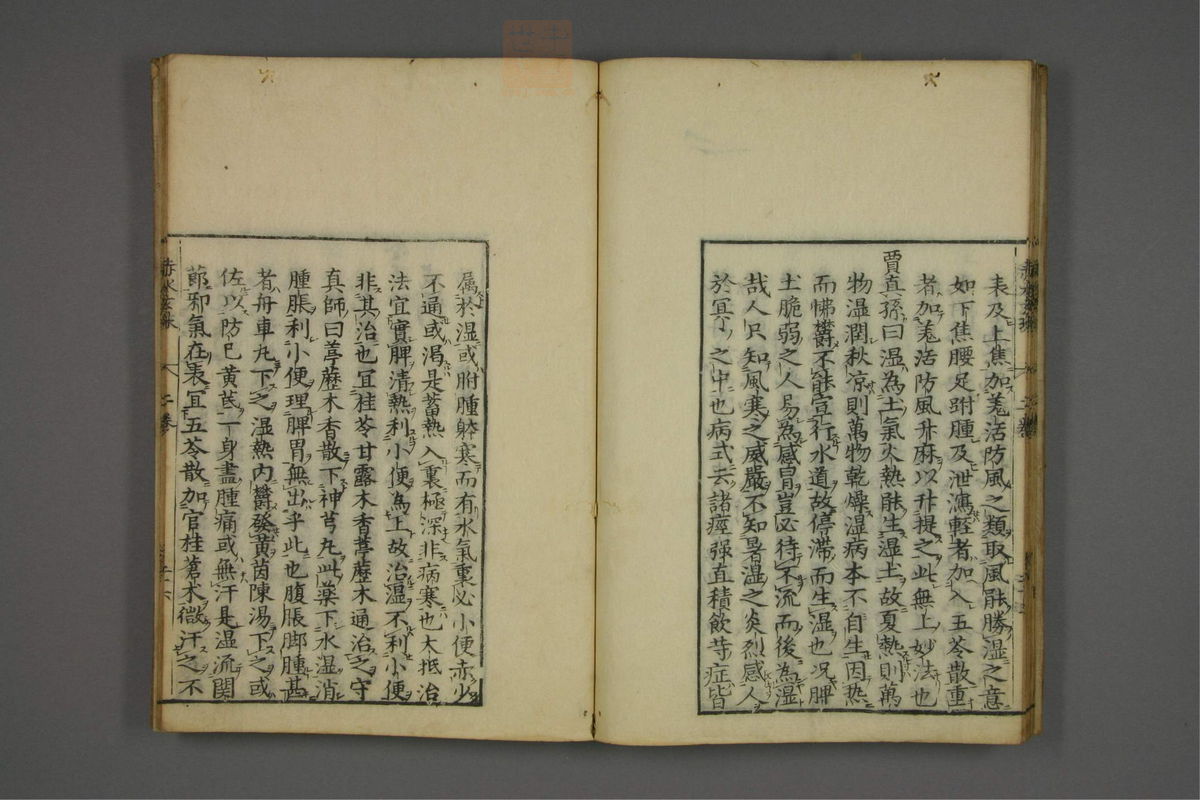 表及上焦加羗活防風之類取風能勝湿之意
如下焦腰足跗腫及泄瀉軽者加入五苓散重
者加羗活防風升麻以升提之此無上妙法也
賈直孫曰湿為土氣火熱能生湿土故夏熱則萬
物温潤秋凉則萬物乾燥湿病本不自生因热
而怫欝不能宣行水道故停滞而生湿也况脾
土脆弱之人易為感冒豈必待不流而後為湿
哉人只知風寒之威嚴不知暑湿之炎烈感人
於冥冥之中也病式云諸痙强直積飲䒭症皆
属於湿或胕腫躰寒而有水氣裏必小便赤少
不通或渴是蓄熱入裏極深非病寒也大抵治
法宜實脾清熱利小便為上故治湿不利小便
非其治也宜桂苓甘露木香葶藶木通治之守
真師曰葶藶木香散下神芎丸此薬下水湿消
腫脹利小便理脾胃無出乎此也腹脹脚腫甚
者舟車丸下之湿熱内欝發黄茵陳湯下之或
佐以防已黄芪一身盡腫痛或無汗是湿流関
節邪氣在表宜五苓散加官桂蒼术微汗之不
赤水玄珠
二卷